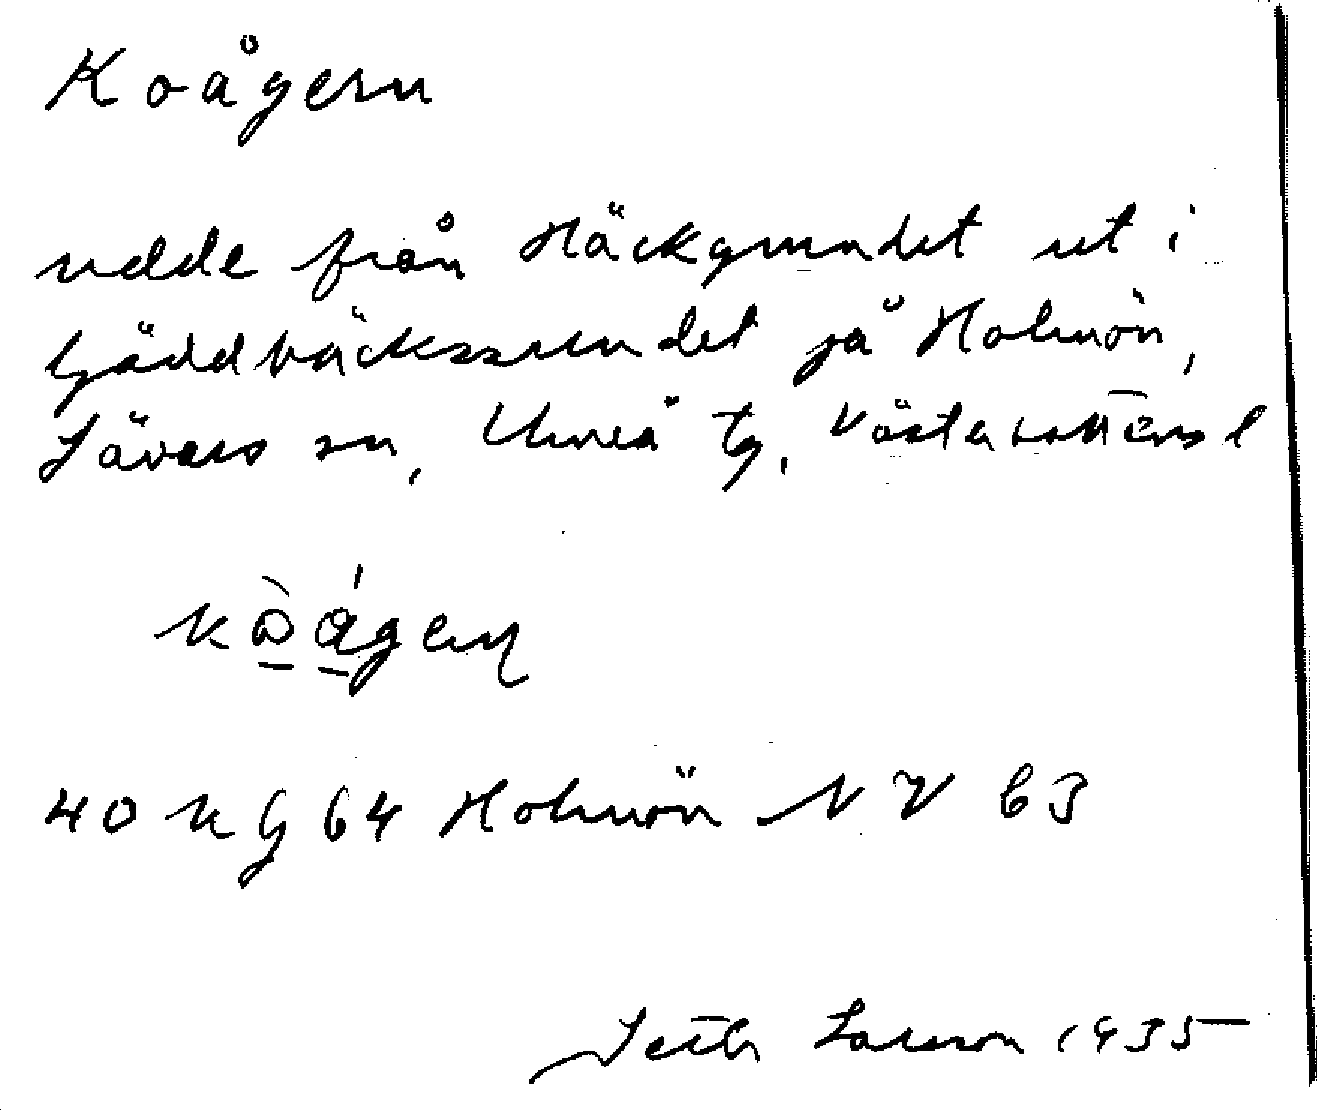 Koågern
udde från Häckgrundet ut i
Gäddbäckssundet på Holmön,
Sävars sn, Umeå tg, Västerbottens l
kòágeṇ
40 KG 64 Holmön NV 63
Seth Larson 1935